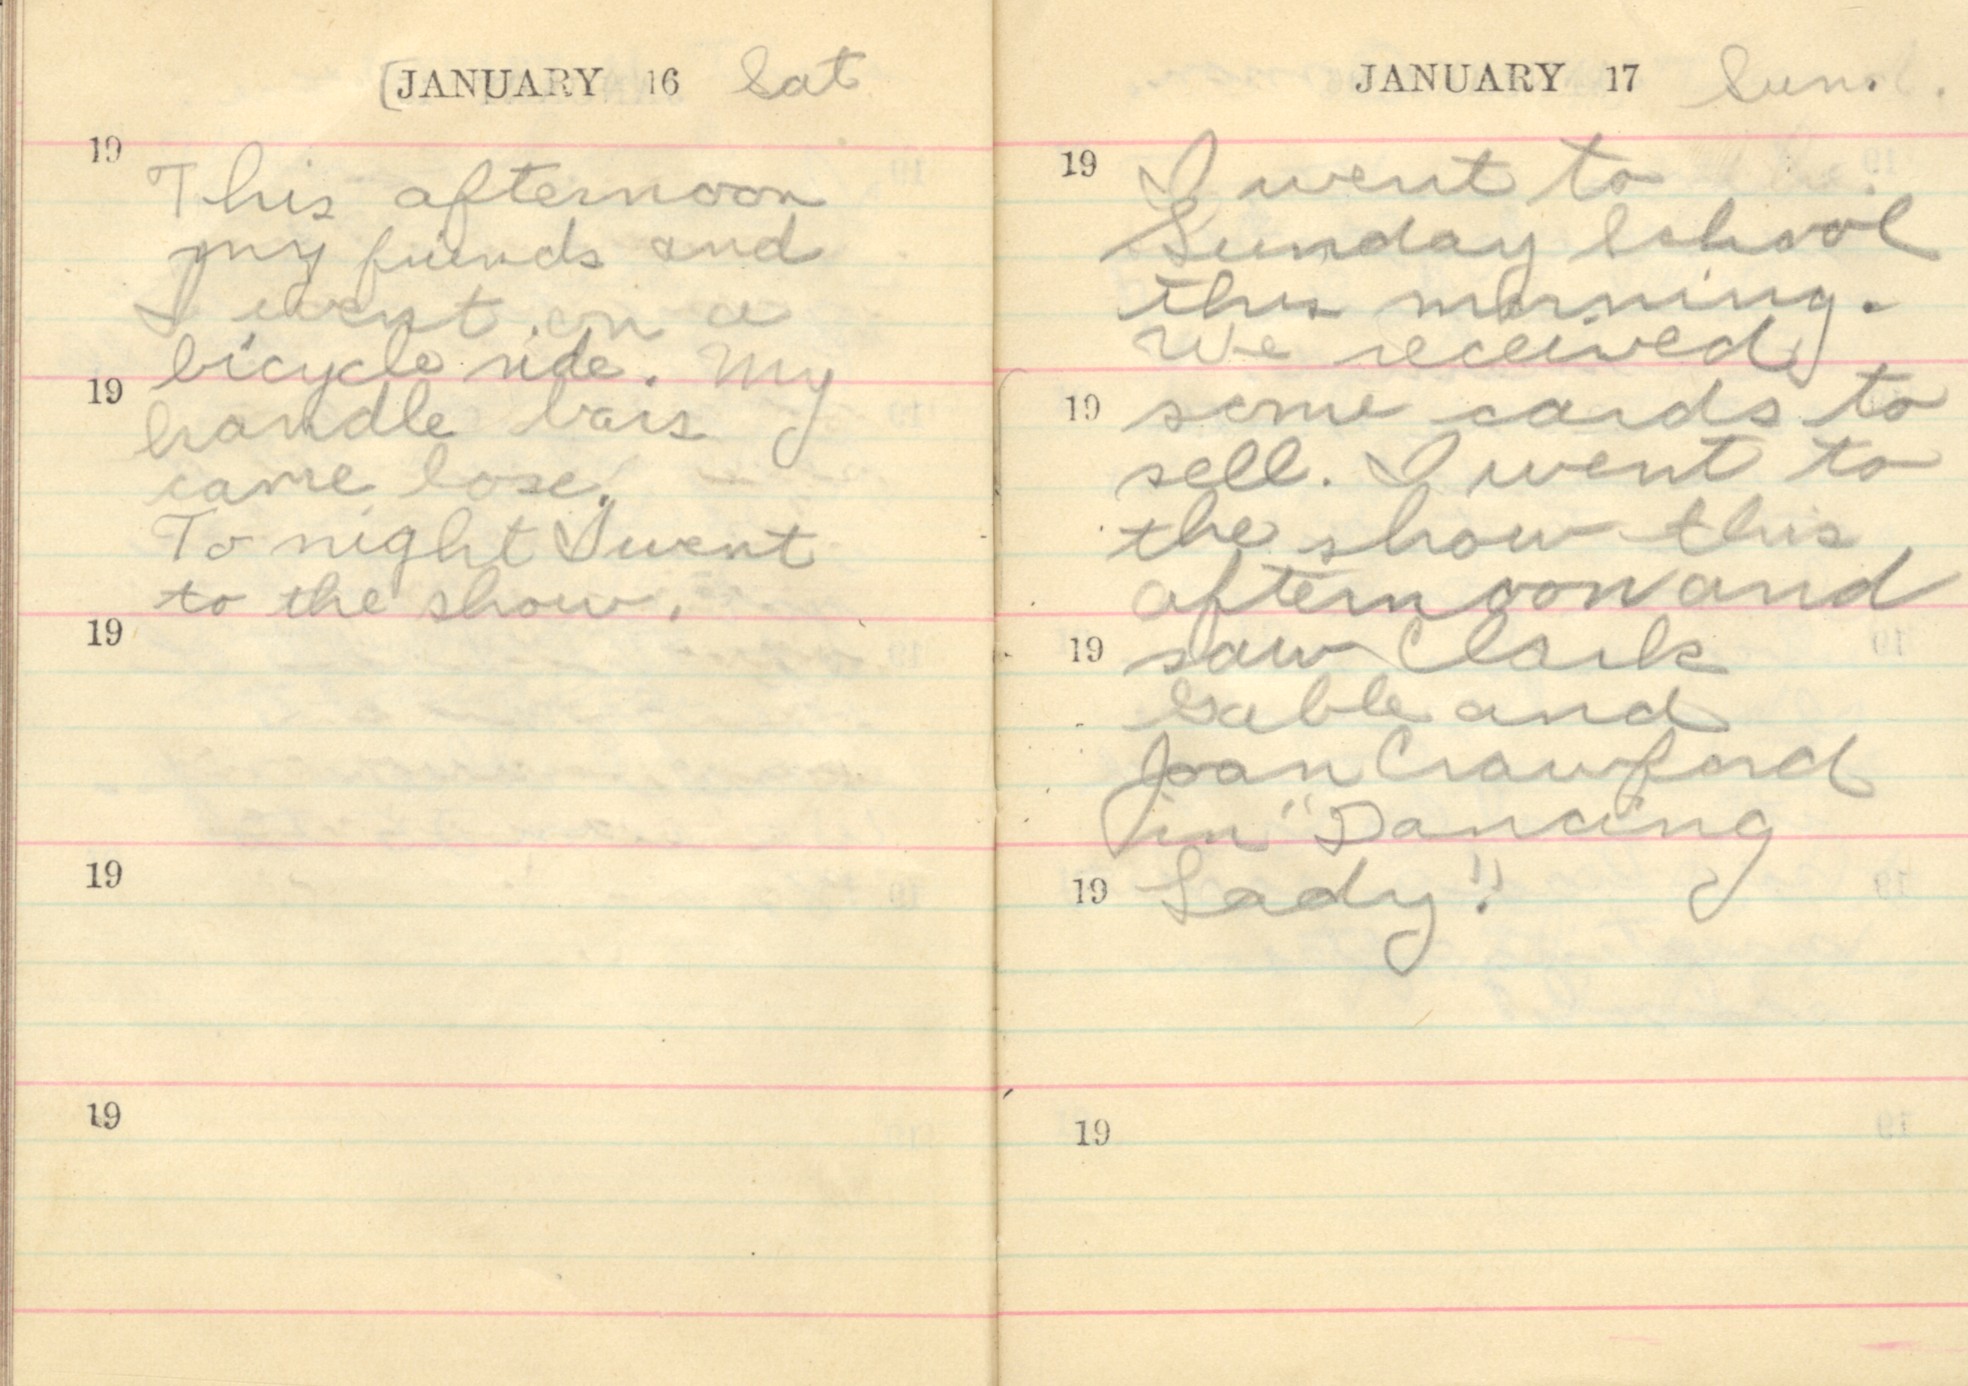 JANUARY 16 Sat
19
This afternoon
my friends and
I went on a
bicycle ride. My
19
handle bars
came lose.
To night I went
to the show.
19
19
19
JANUARY 17 Sun.
19
I went to
Sunday School
this morning.
We received
19
some cards to
sell. I went to
the show this
afternoon and
19
saw Clark
Gable and
Joan Crawford
in "Dancing
19
Lady".
19